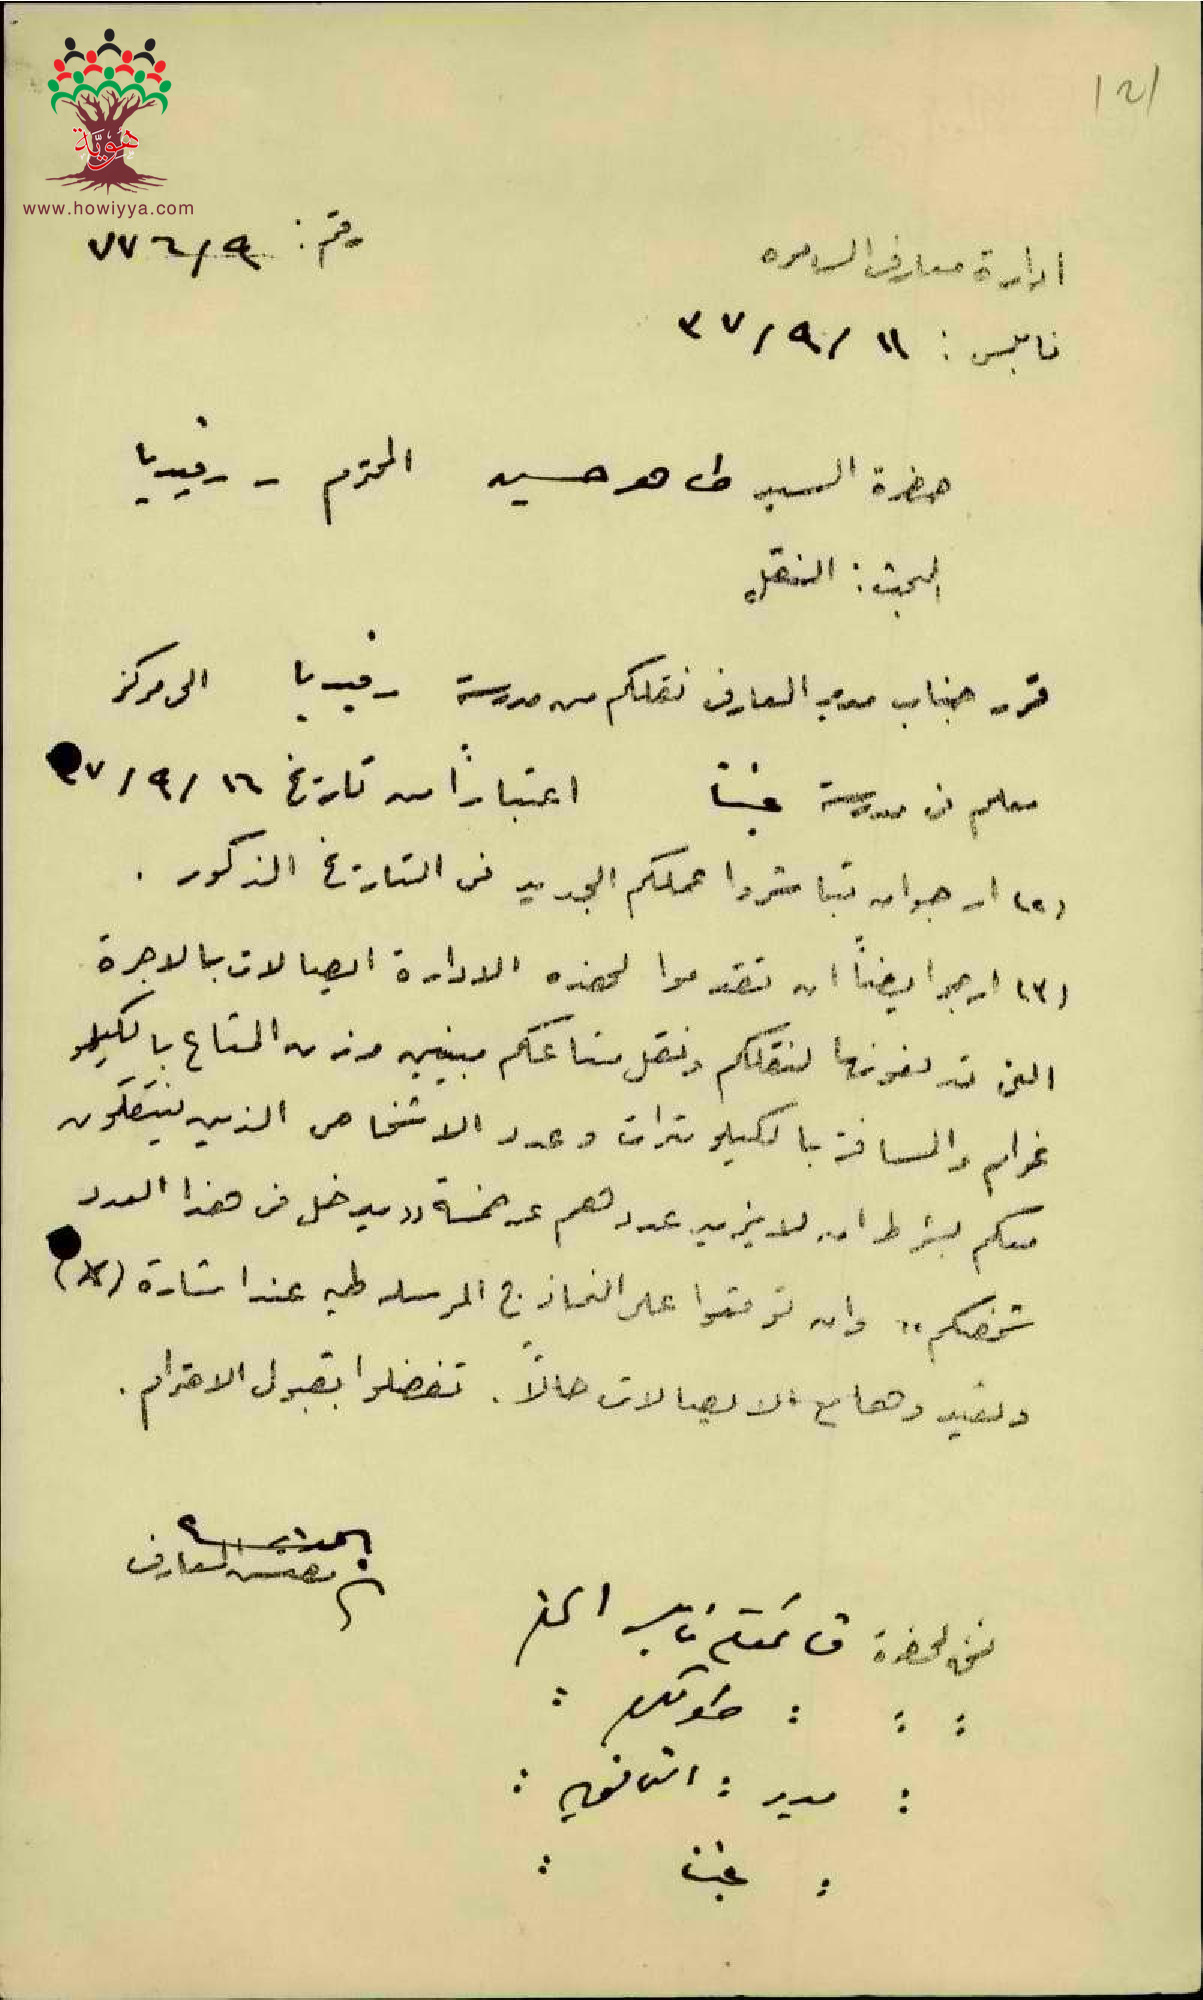 هَوِيَّة
www.howiyya.com
١٢١
ادارة معارف السامره
رقم : ٧٧٤/٩
نابلس : ١١/٩/٣٧
حضرة السيد طاهر حسين المحترم - رفيديا
المبحث : النقل
قرر جناب مدير المعارف نقلكم من مدرسة رفيديا الى مركز
معلم في مدرسة اعتباراً من تاريخ ١٦/٩/٣٧
(٢) ارجو ان تباشروا عملكم الجديد في التاريخ المذكور .
(٣) ارجو ايضاً ان تقدموا لهذه الادارة ايصالات بالاجرة
التي تدفعونها لنقلكم ونقل متاعكم مبينين وزن المتاع بالكيلو
غرام والمسافة بالكيلو مترات وعدد الاشخاص الذين ينتقلون
معكم بشرط ان لا يزيد عددهم عن خمسة "يدخل في هذا العدد
شخصكم" وان توقعوا على النماذج المرسلة طيه عند اشارة (X)
وتعيدوها مع الايصالات حالاً . تفضلوا بقبول الاحترام .
مفتش المعارف
نسخة لحضرة قائمقام نابلس المحترم
: : : طولكرم :
: مدير : :
: :